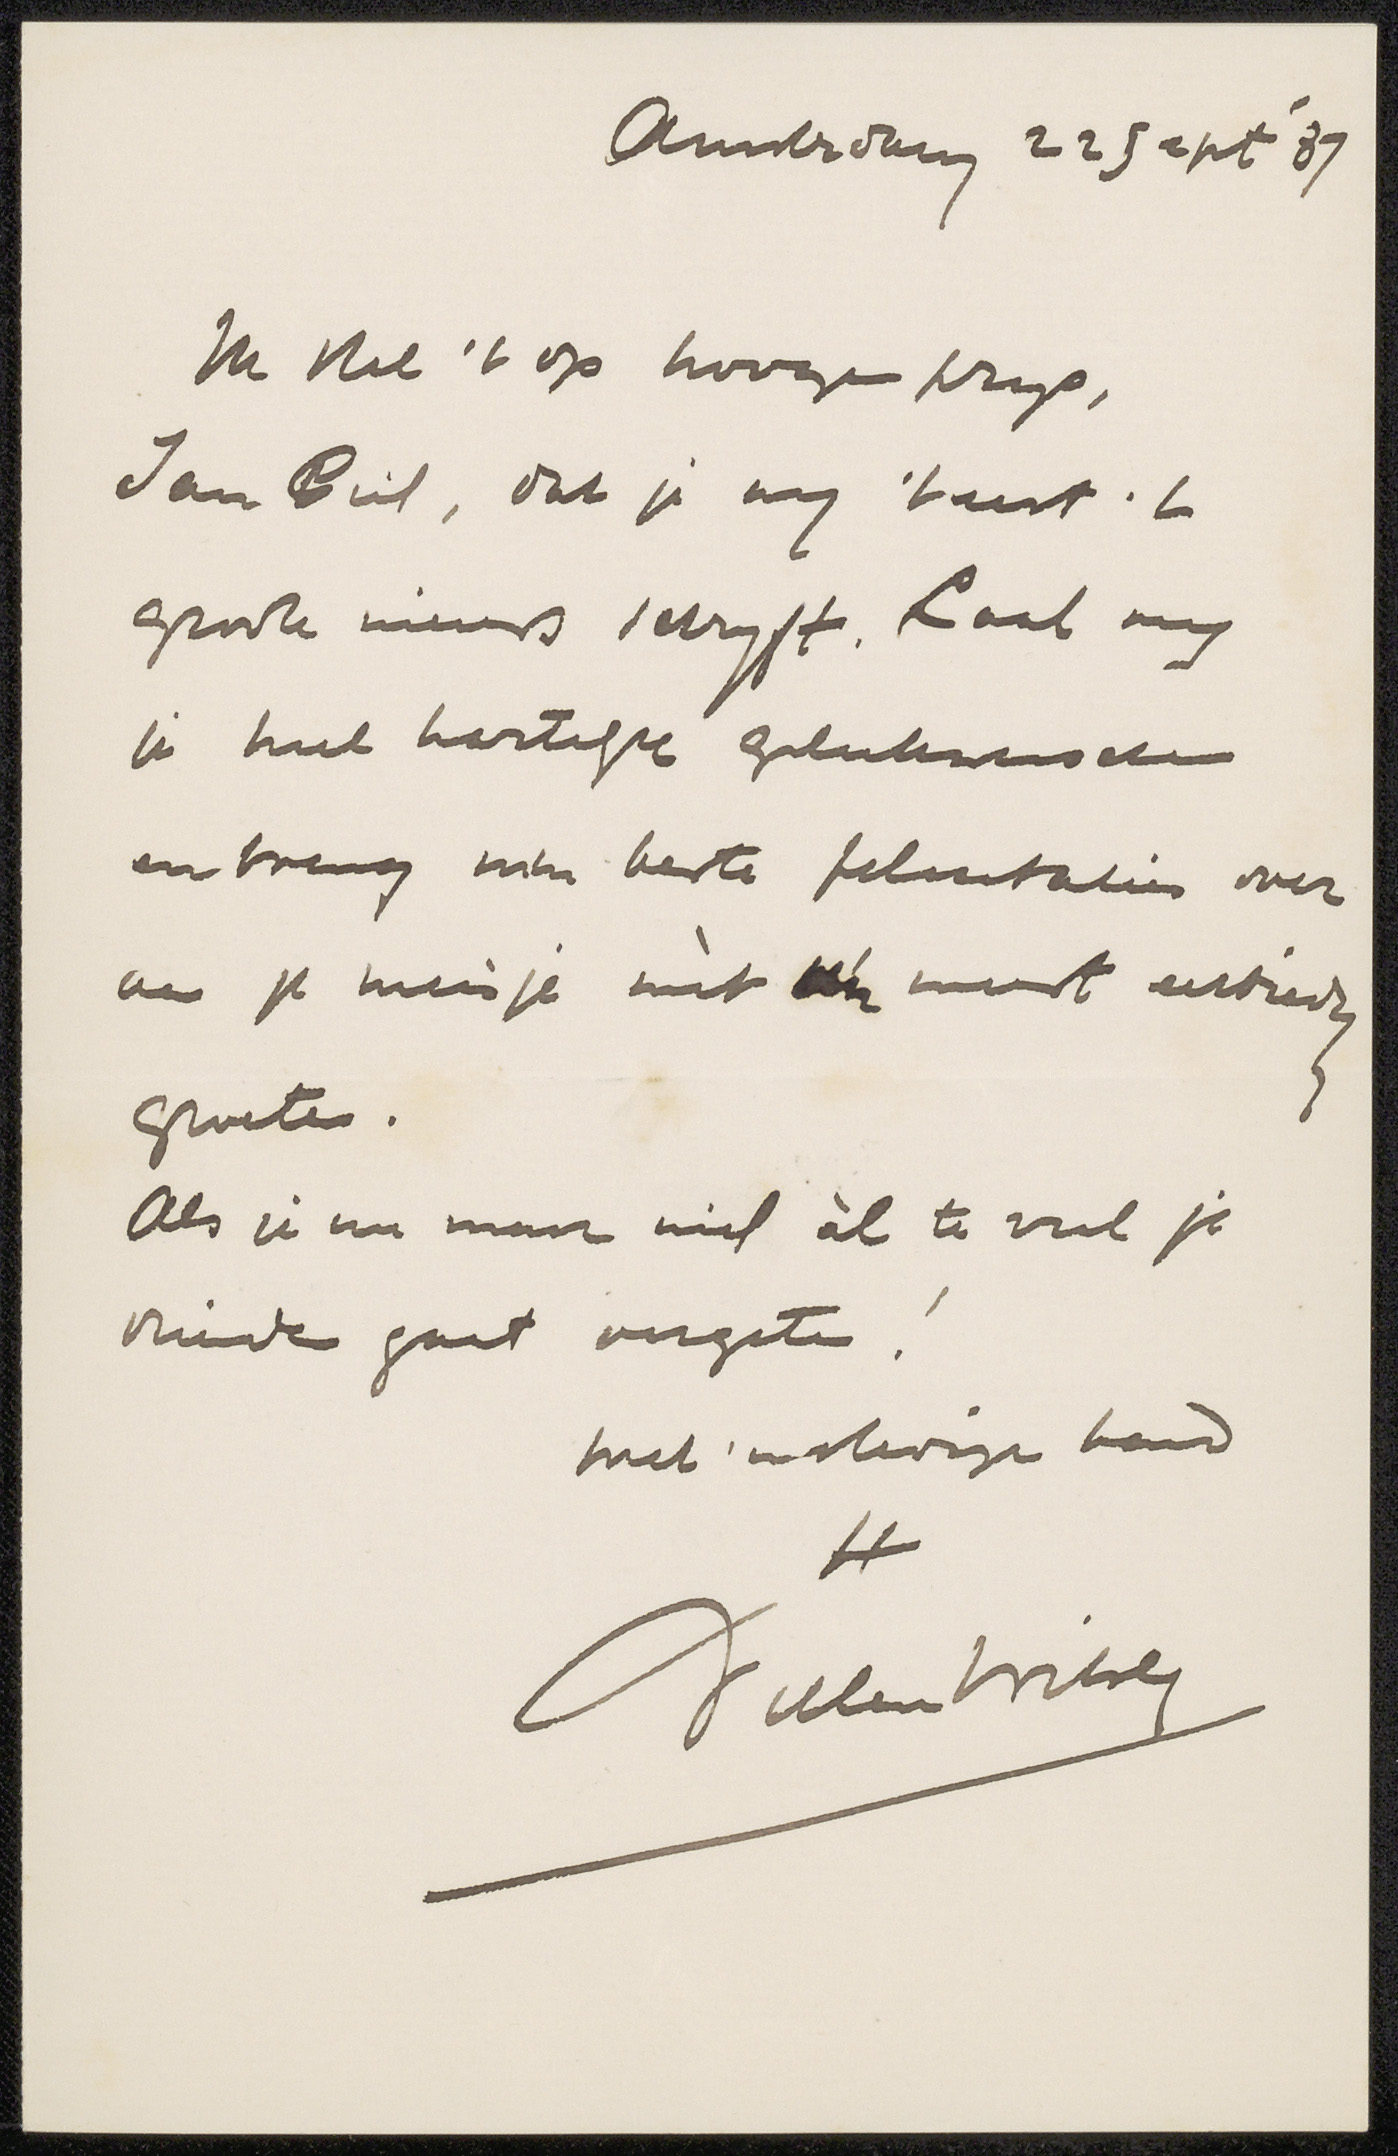 Amsterdam 22 Sept '87
Ik stel 't op hooge prijs,
Jan Piet, dat je mij 't eerst 't
groote nieuws schrijft. Laat mij
je heel hartelijk gelukwenschen
en breng mijn beste felicitaties over
aan je meisje mèt m'n meest eerbiedige
groeten.
Als je nu maar niet àl te veel je
vrienden gaat vergeten!
met stevige hand
tt
Willem Witsen